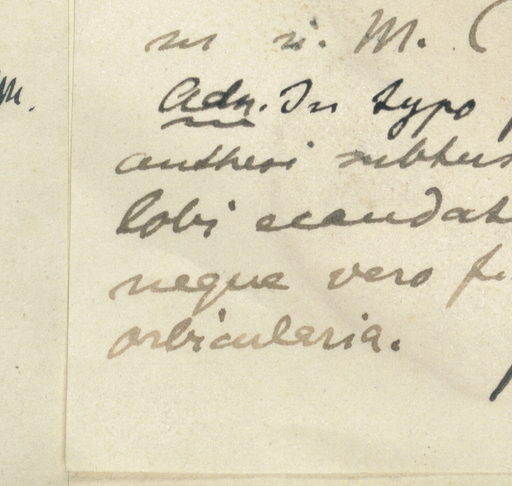 m.
in n. M. (
Adn. In typo
antheri subtus
lobi ecaudat
neque vero
orbicularia.